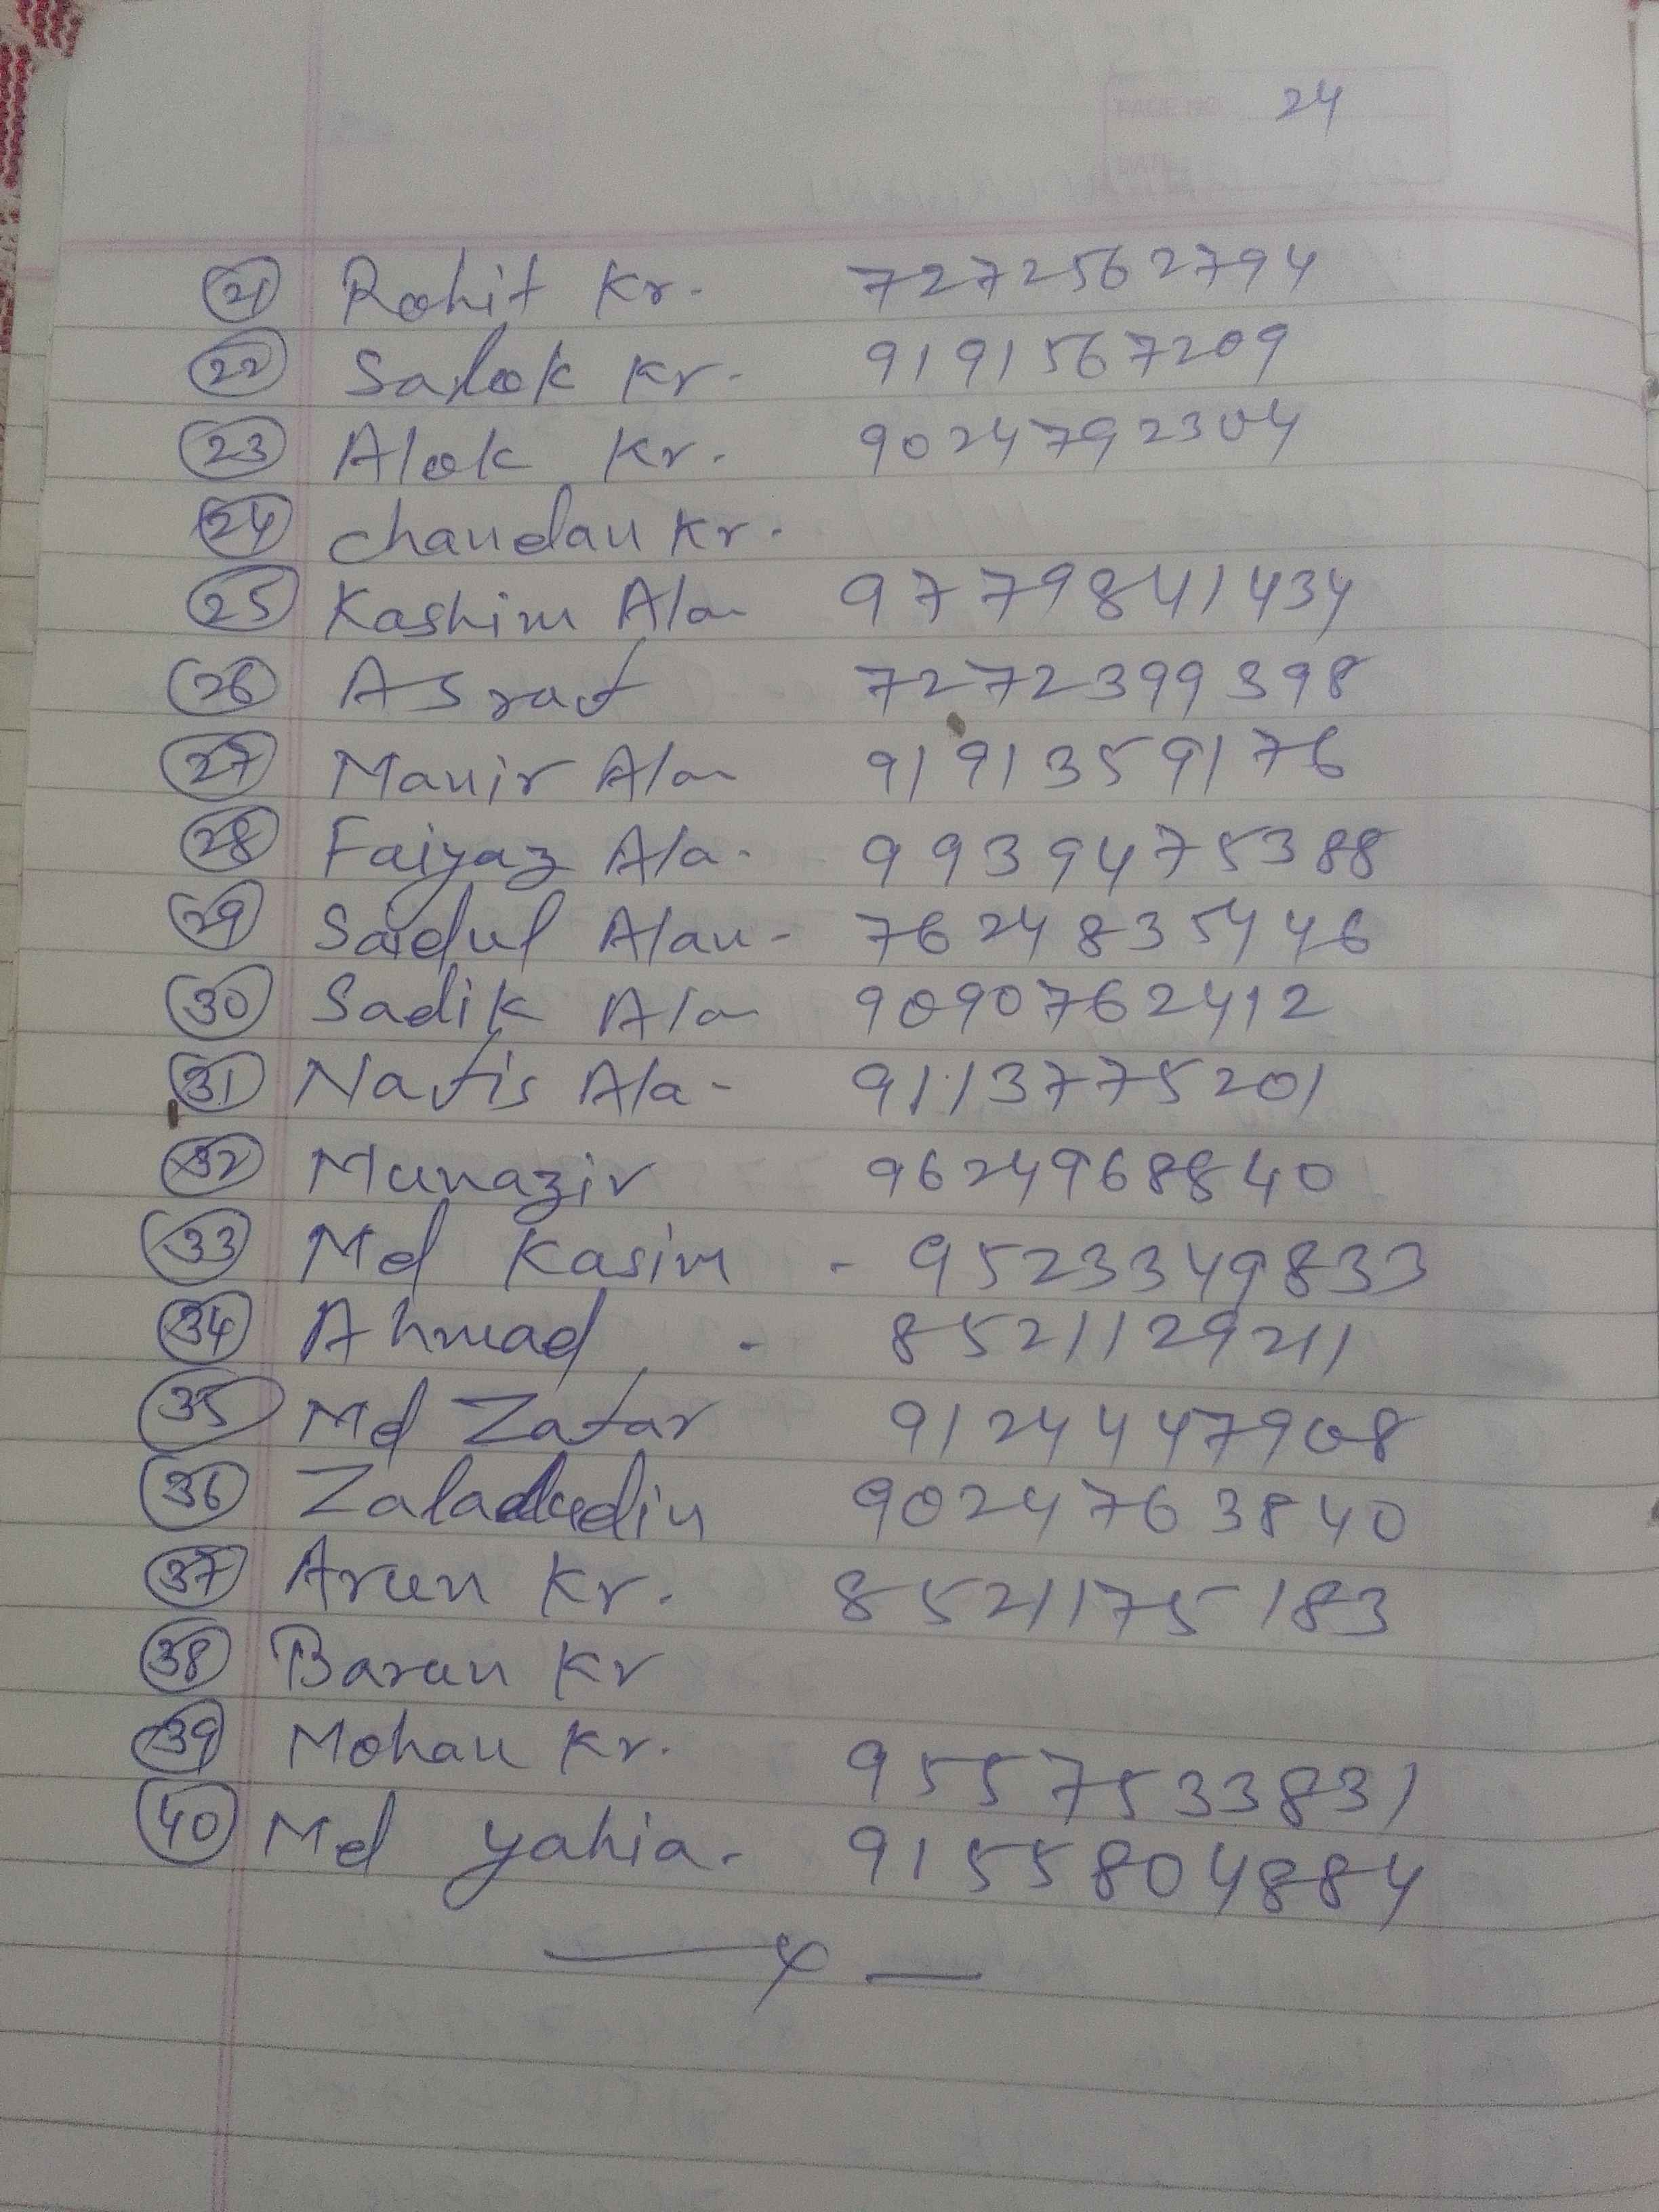 24
21 Rohit Kr. 7272562794
22 Salok Kr. 9191567209
23 Alok Kr. 9024792304
24 Chandan Kr.
25 Kashim Ala 9779841434
26 Asraf 7272399398
27 Manir Ala 9191359176
28 Faiyaz Ala. 9939475388
29 Saidul Alam - 7624835446
30 Sadik Ala 9090762412
31 Nafis Ala - 9113775201
32 Munazir 9624968840
33 Md Kasim - 9523349833
34 Ahmad - 8521129211
35 Md Zafar 9124447908
36 9024763840
37 Arun Kr. 8521175183
38 Barun Kr
39 Mohan Kr. 9557533831
40 Md yahia. 9155804884